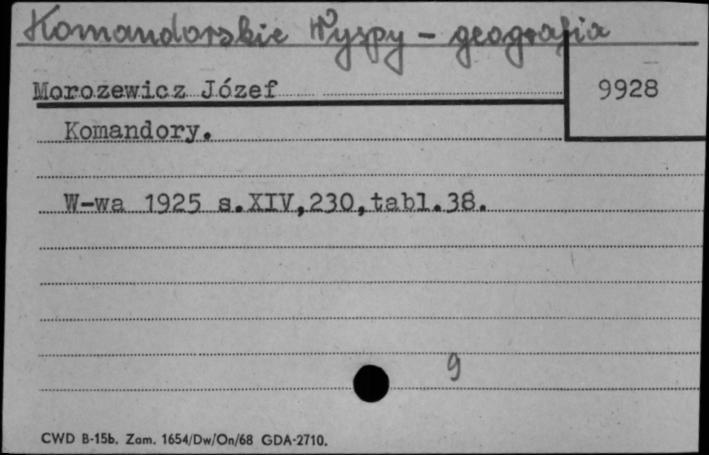 Komandorskie Wyspy - geografia
Morozewicz Józef
9928
Komandory.
W-wa 1925 s.XIV,230,tabl.38.
9
CWD B-15b. Zam. 1654/Dw/On/68 GDA-2710.